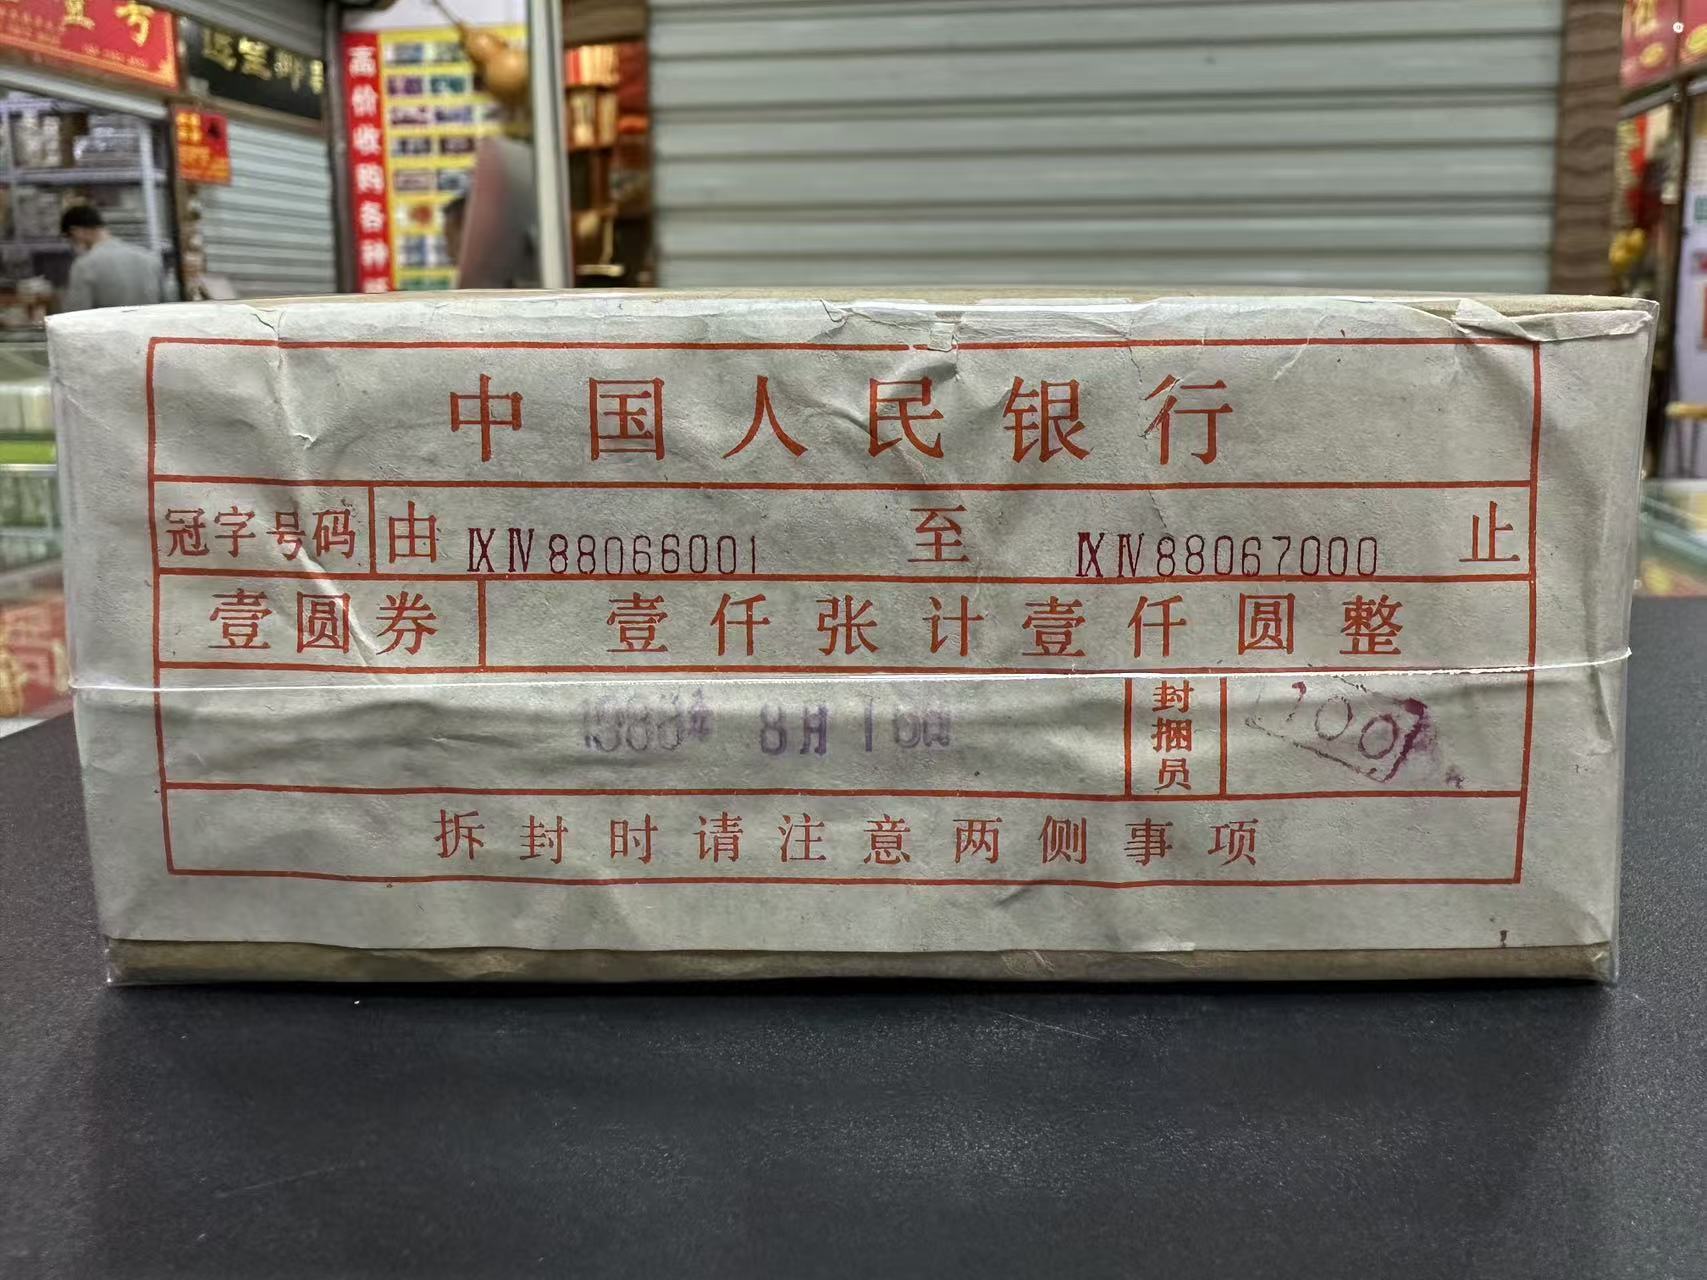 高价收购各种
中国人民银行
冠字号码 由 ⅨⅣ88066001 至 ⅨⅣ88067000 止
壹圆券 壹仟张计壹仟圆整
8月16日 封捆员
拆封时请注意两侧事项